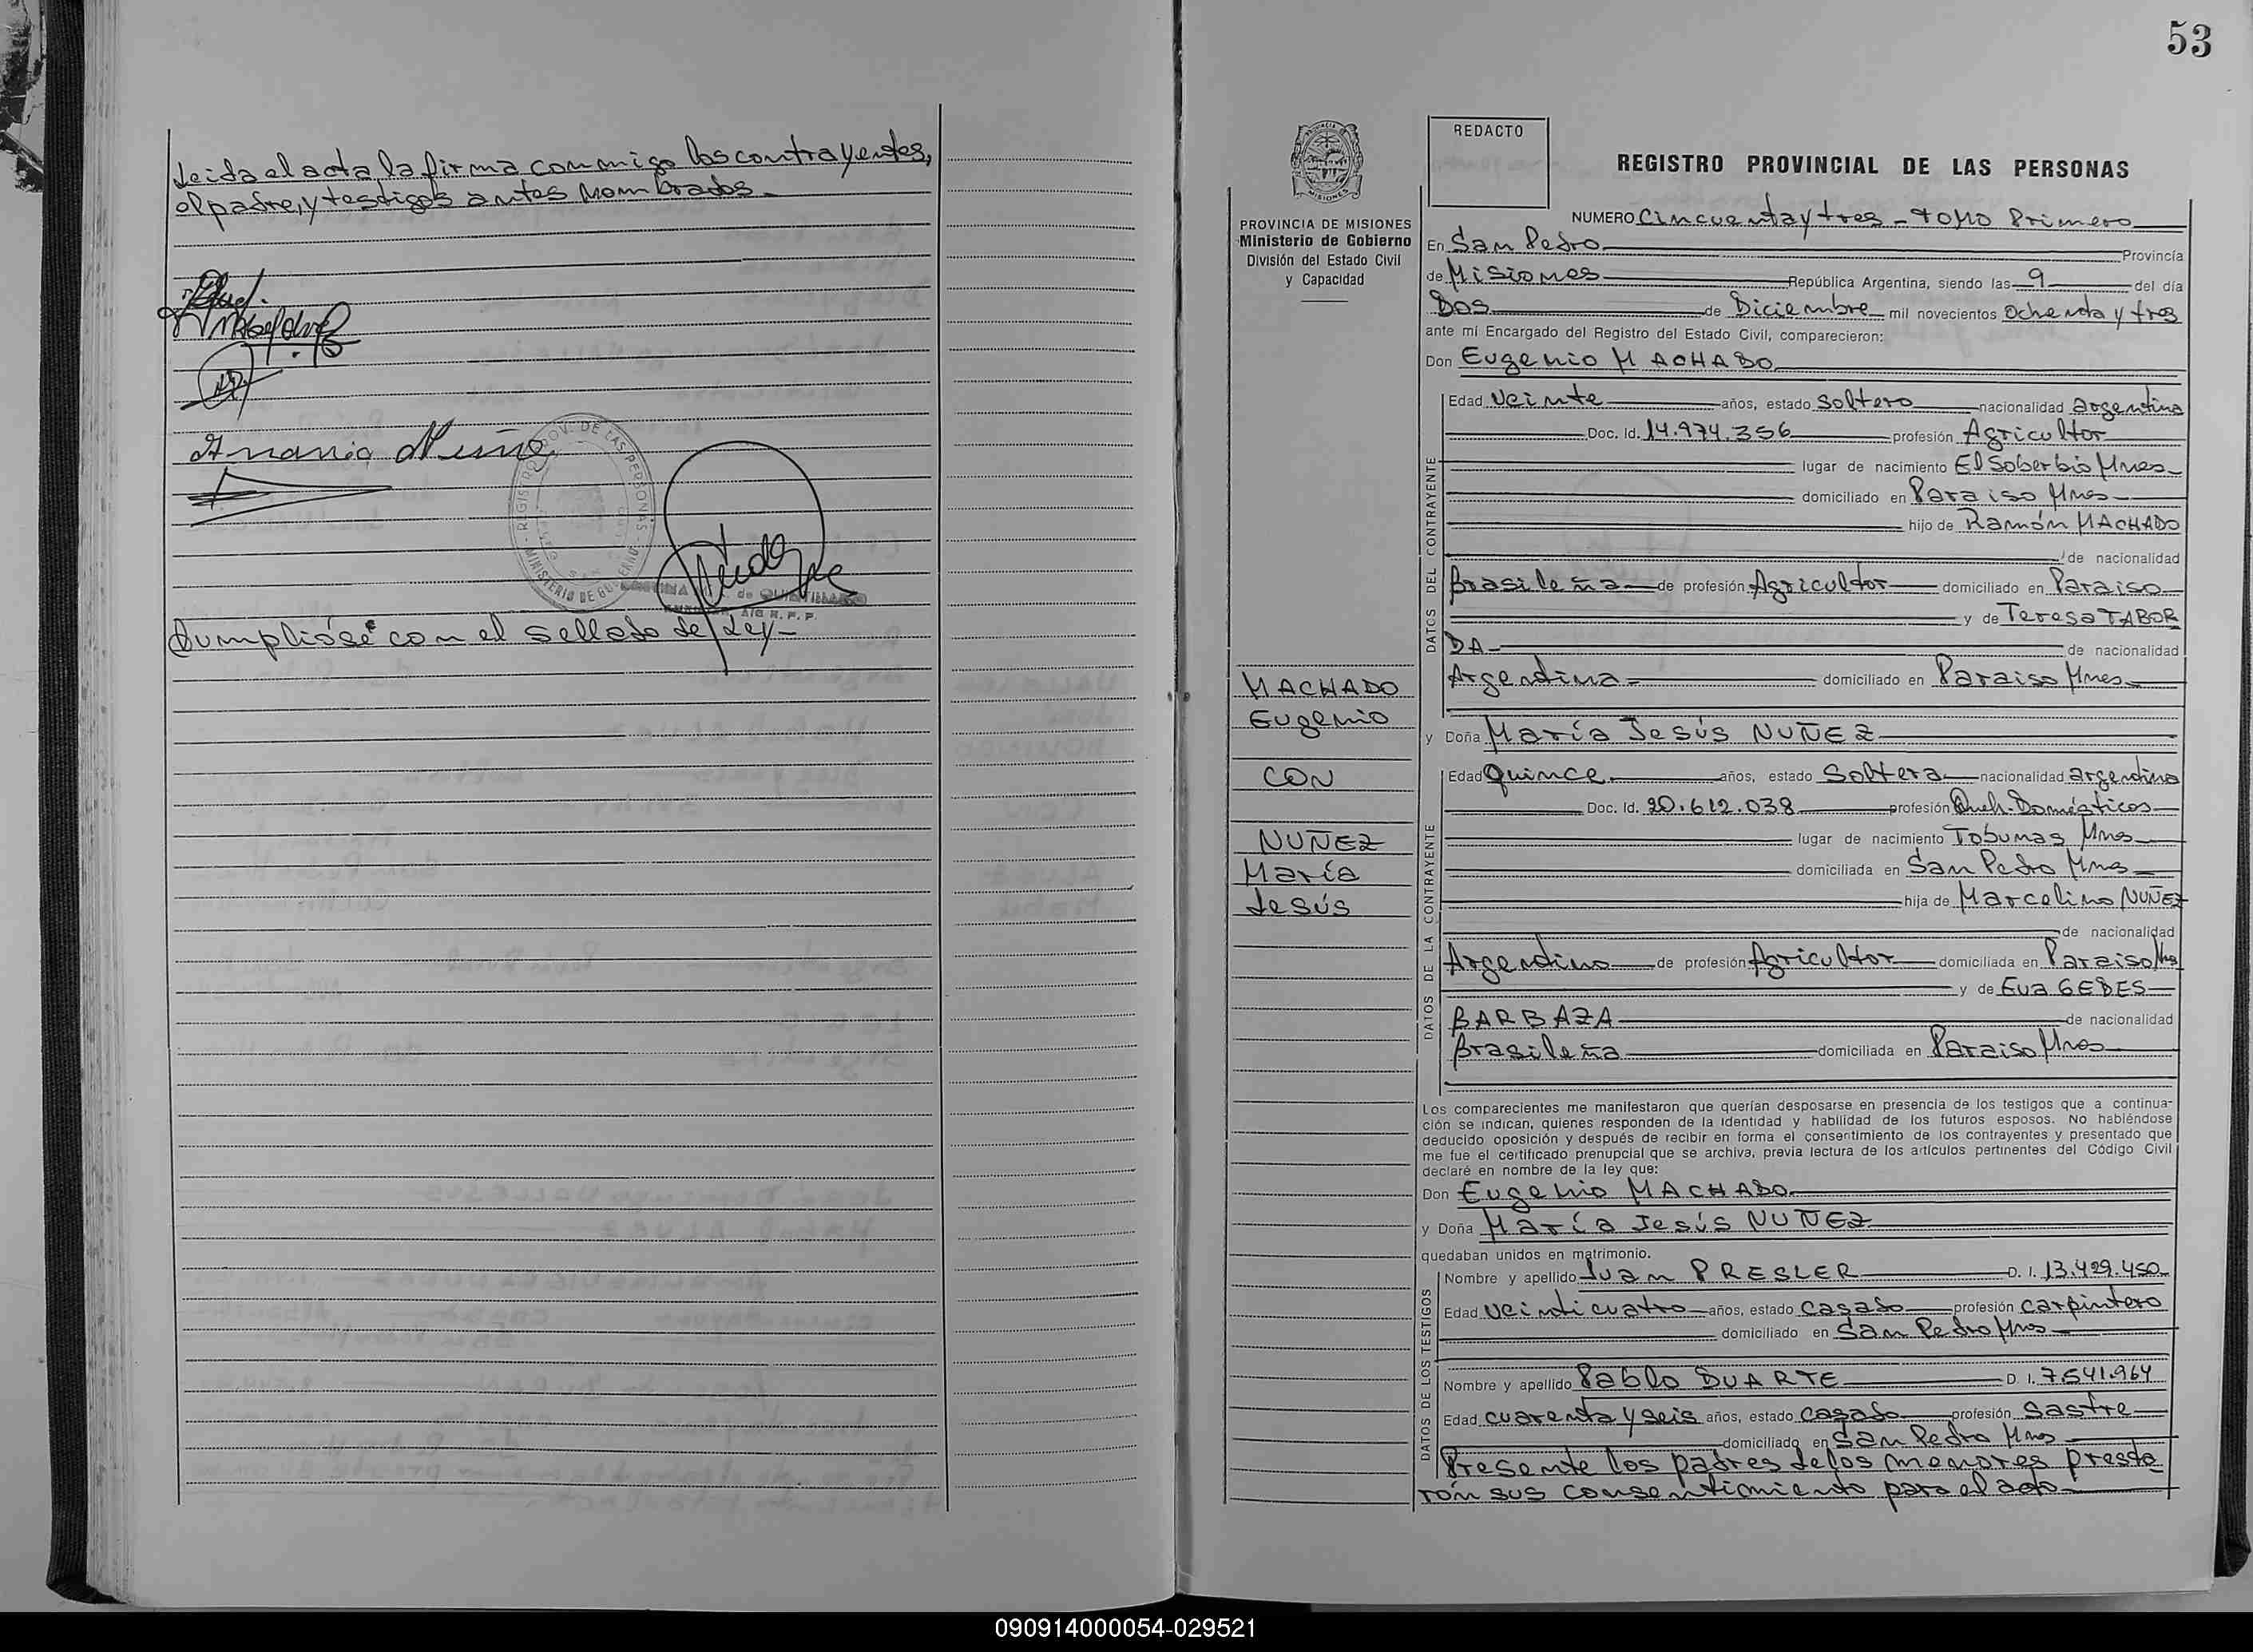 Leida el acta la firma conmigo los contrayentes,
el padre, y testigos antes nombrados
REGISTRO PROV. DE LAS PERSONAS
MINISTERIO DE GOBIERNO
Cumplióse con el sellado de Ley
53
REDACTO
REGISTRO PROVINCIAL DE LAS PERSONAS
PROVINCIA DE MISIONES
Ministerio de Gobierno
División del Estado Civil
y Capacidad
MACHADO
Eugenio
CON
NUÑEZ
María
Jesús
NUMERO Cincuenta y tres - TOMO Primero
En San Pedro Provincia
de Misiones República Argentina, siendo las 9 del día
Dos de Diciembre mil novecientos Ochenta y tres
ante mí Encargado del Registro del Estado Civil, comparecieron:
Don Eugenio MACHADO
DATOS DEL CONTRAYENTE
Edad Veinte años, estado Soltero nacionalidad argentina
Doc. Id. 14.974.356 profesión Agricultor
lugar de nacimiento El Soberbio Mnes
domiciliado en Paraiso Mnes
hijo de Ramón MACHADO
de nacionalidad
Brasileña de profesión Agricultor domiciliado en Paraiso
y de Teresa TABOR
DA de nacionalidad
Argentina domiciliado en Paraiso Mnes
y Doña María Jesús NUÑEZ
DATOS DE LA CONTRAYENTE
Edad Quince años, estado Soltera nacionalidad argentina
Doc. Id. 20.612.038 profesión Queh. Domésticos
lugar de nacimiento Tobunas Mnes
domiciliada en San Pedro Mnes
hija de Marcelino NUÑEZ
de nacionalidad
Argentino de profesión Agricultor domiciliada en Paraiso Mns
y de Eva GEDES
BARBAZA de nacionalidad
Brasileña domiciliada en Paraiso Mnes
Los comparecientes me manifestaron que querían desposarse en presencia de los testigos que a continua-
ción se indican, quienes responden de la identidad y habilidad de los futuros esposos. No habiéndose
deducido oposición y después de recibir en forma el consentimiento de los contrayentes y presentado que
me fue el certificado prenupcial que se archiva, previa lectura de los artículos pertinentes del Código Civil
declaré en nombre de la ley que:
Don Eugenio MACHADO
y Doña María Jesús NUÑEZ
quedaban unidos en matrimonio.
DATOS DE LOS TESTIGOS
Nombre y apellido Juan PRESLER D. I. 13.429.450
Edad Veinticuatro años, estado casado profesión carpintero
domiciliado en San Pedro Mnes
Nombre y apellido Pablo DUARTE D. I. 7.541.964
Edad cuarenta y seis años, estado casado profesión Sastre
domiciliado en San Pedro Mnes
Presente los padres de los menores presta
ron sus consentimiento para el acto
090914000054-029521